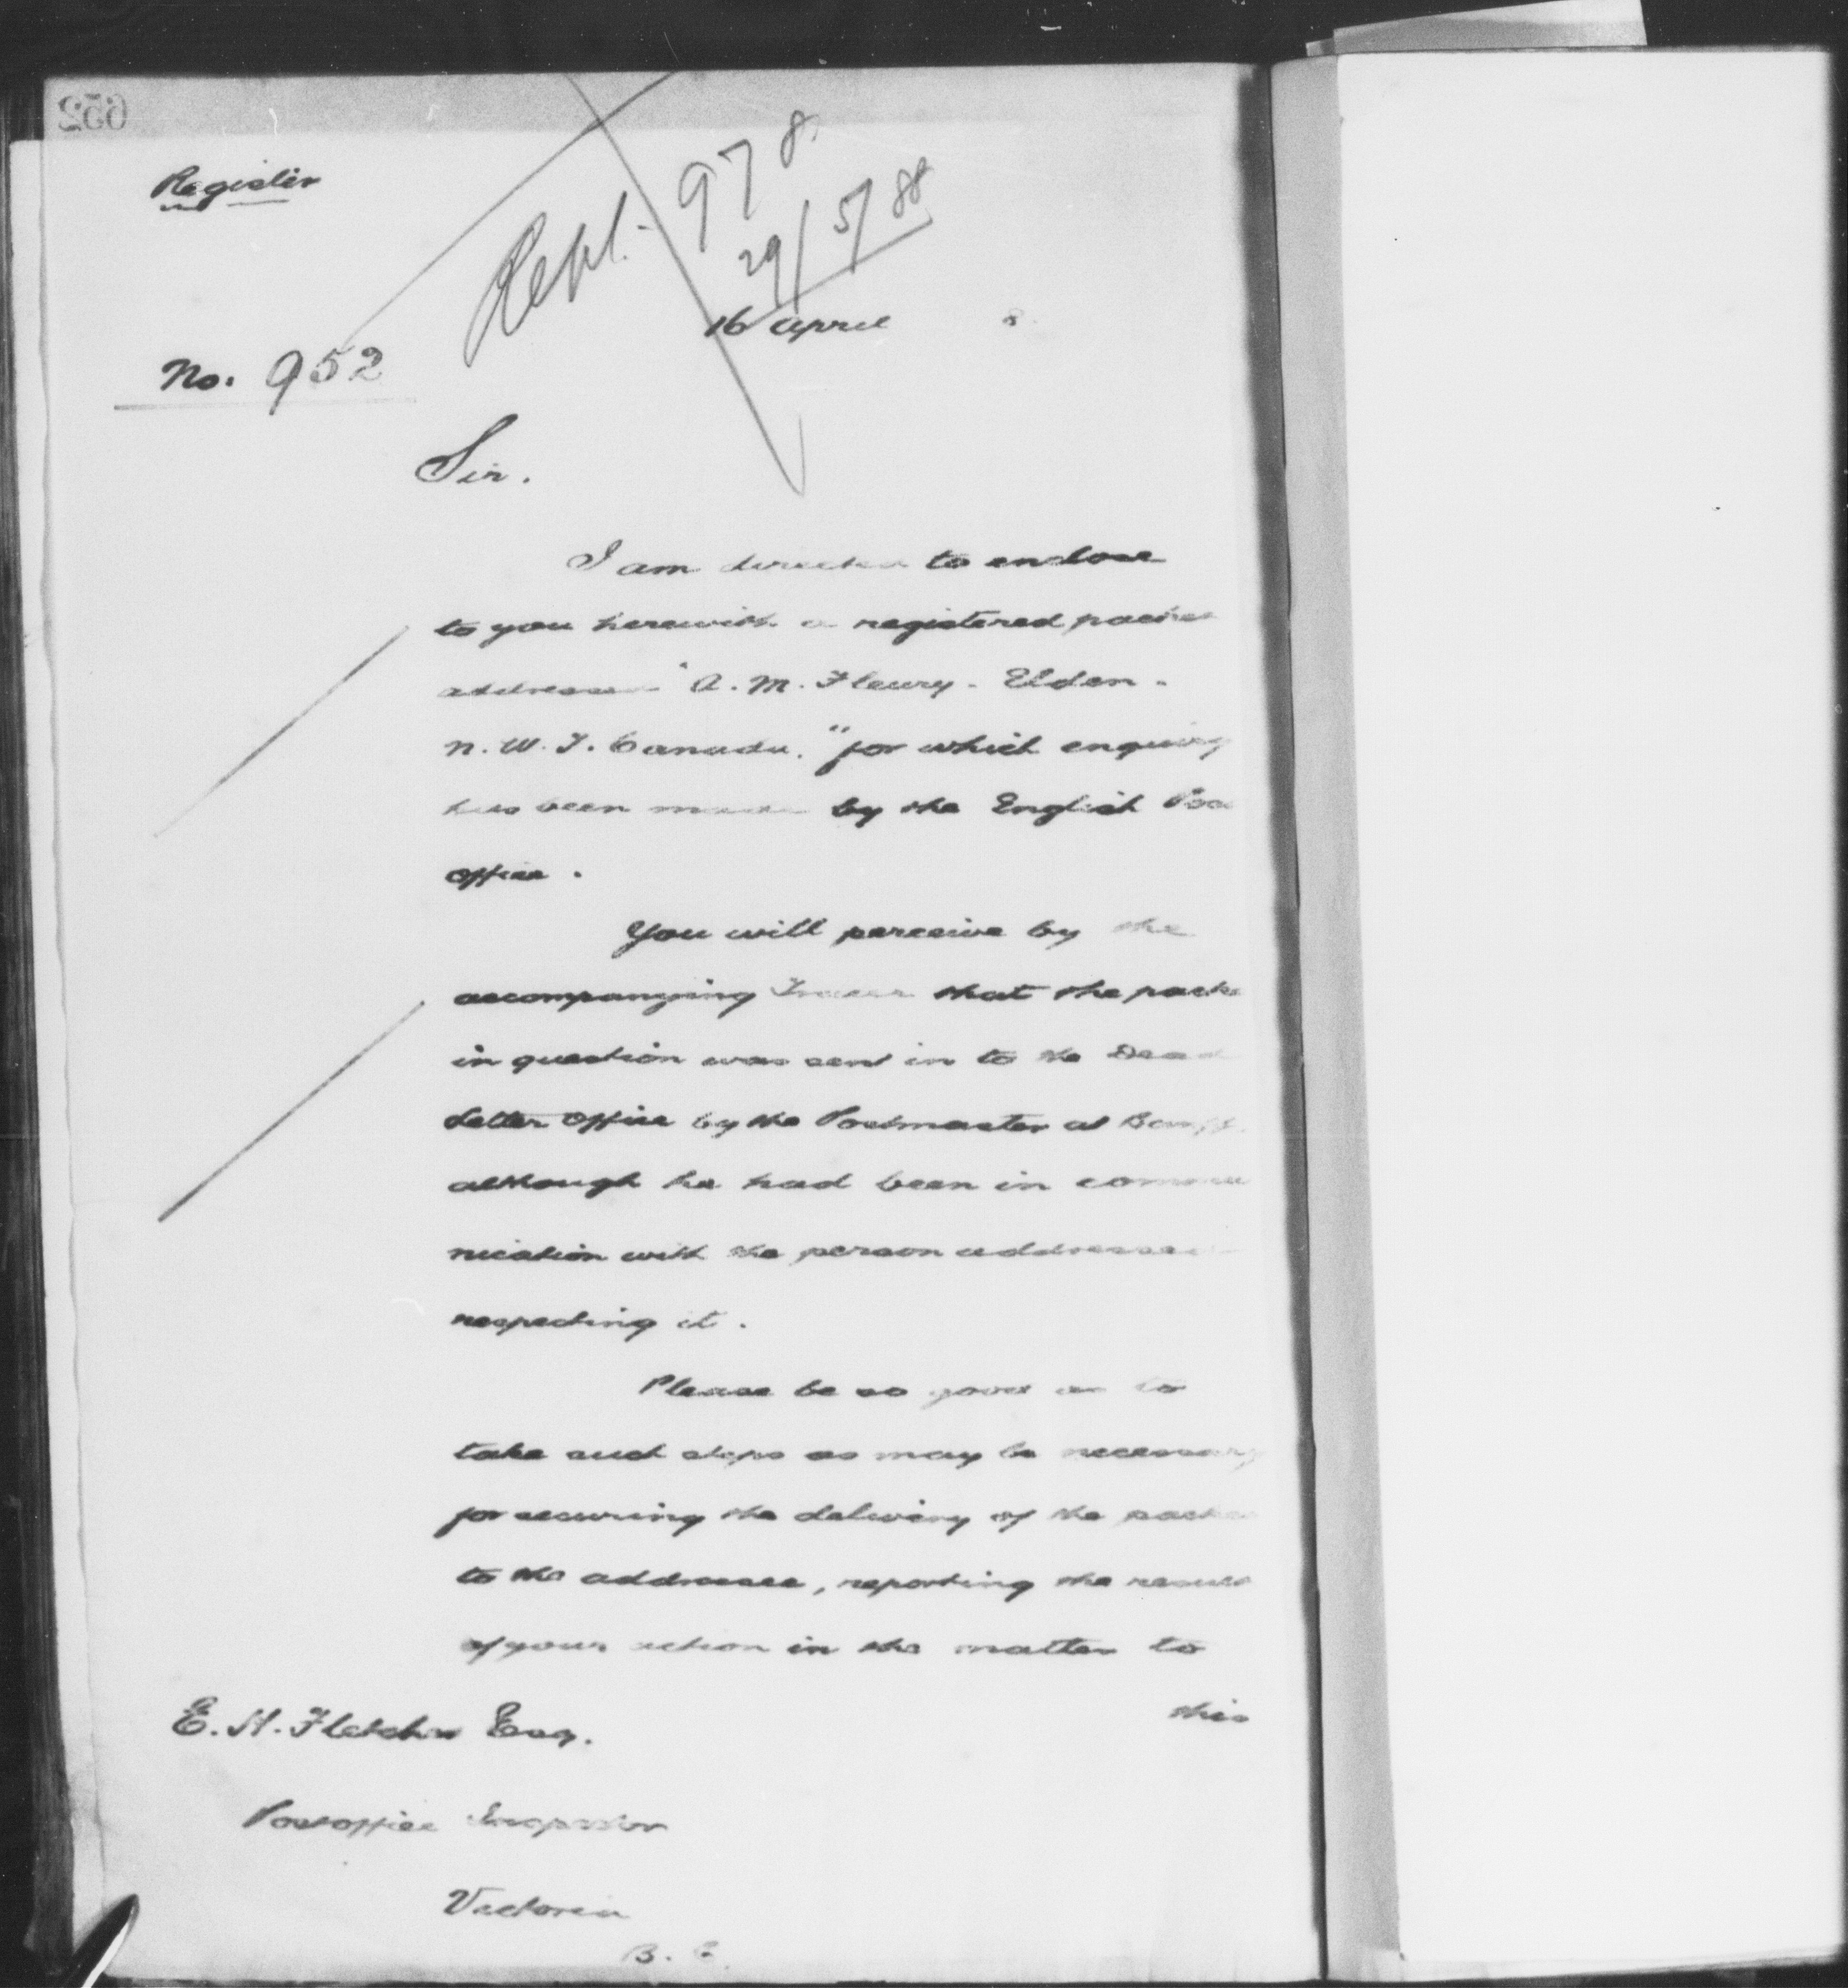 652
Register
Repl. 978.
29/5/88
16 April 8.
No. 952
Sir.
I am directed to enclose
to you herewith a registered packet
addressed "A. M. Fleury - Elden -
N. W. T. Canada." for which enquiry
has been made by the English Post
Office.
You will perceive by the
accompanying Tracer that the packet
in question was sent in to the Dead
Letter Office by the Postmaster at Banff,
although he had been in commu
nication with the person addressed
respecting it.
Please be so good as to
take such steps as may be necessary
for securing the delivery of the packet
to the addressee, reporting the result
of your action in the matter to
this
E. H. Fletcher Esq.
Postoffice Inspector
Victoria
B. C.